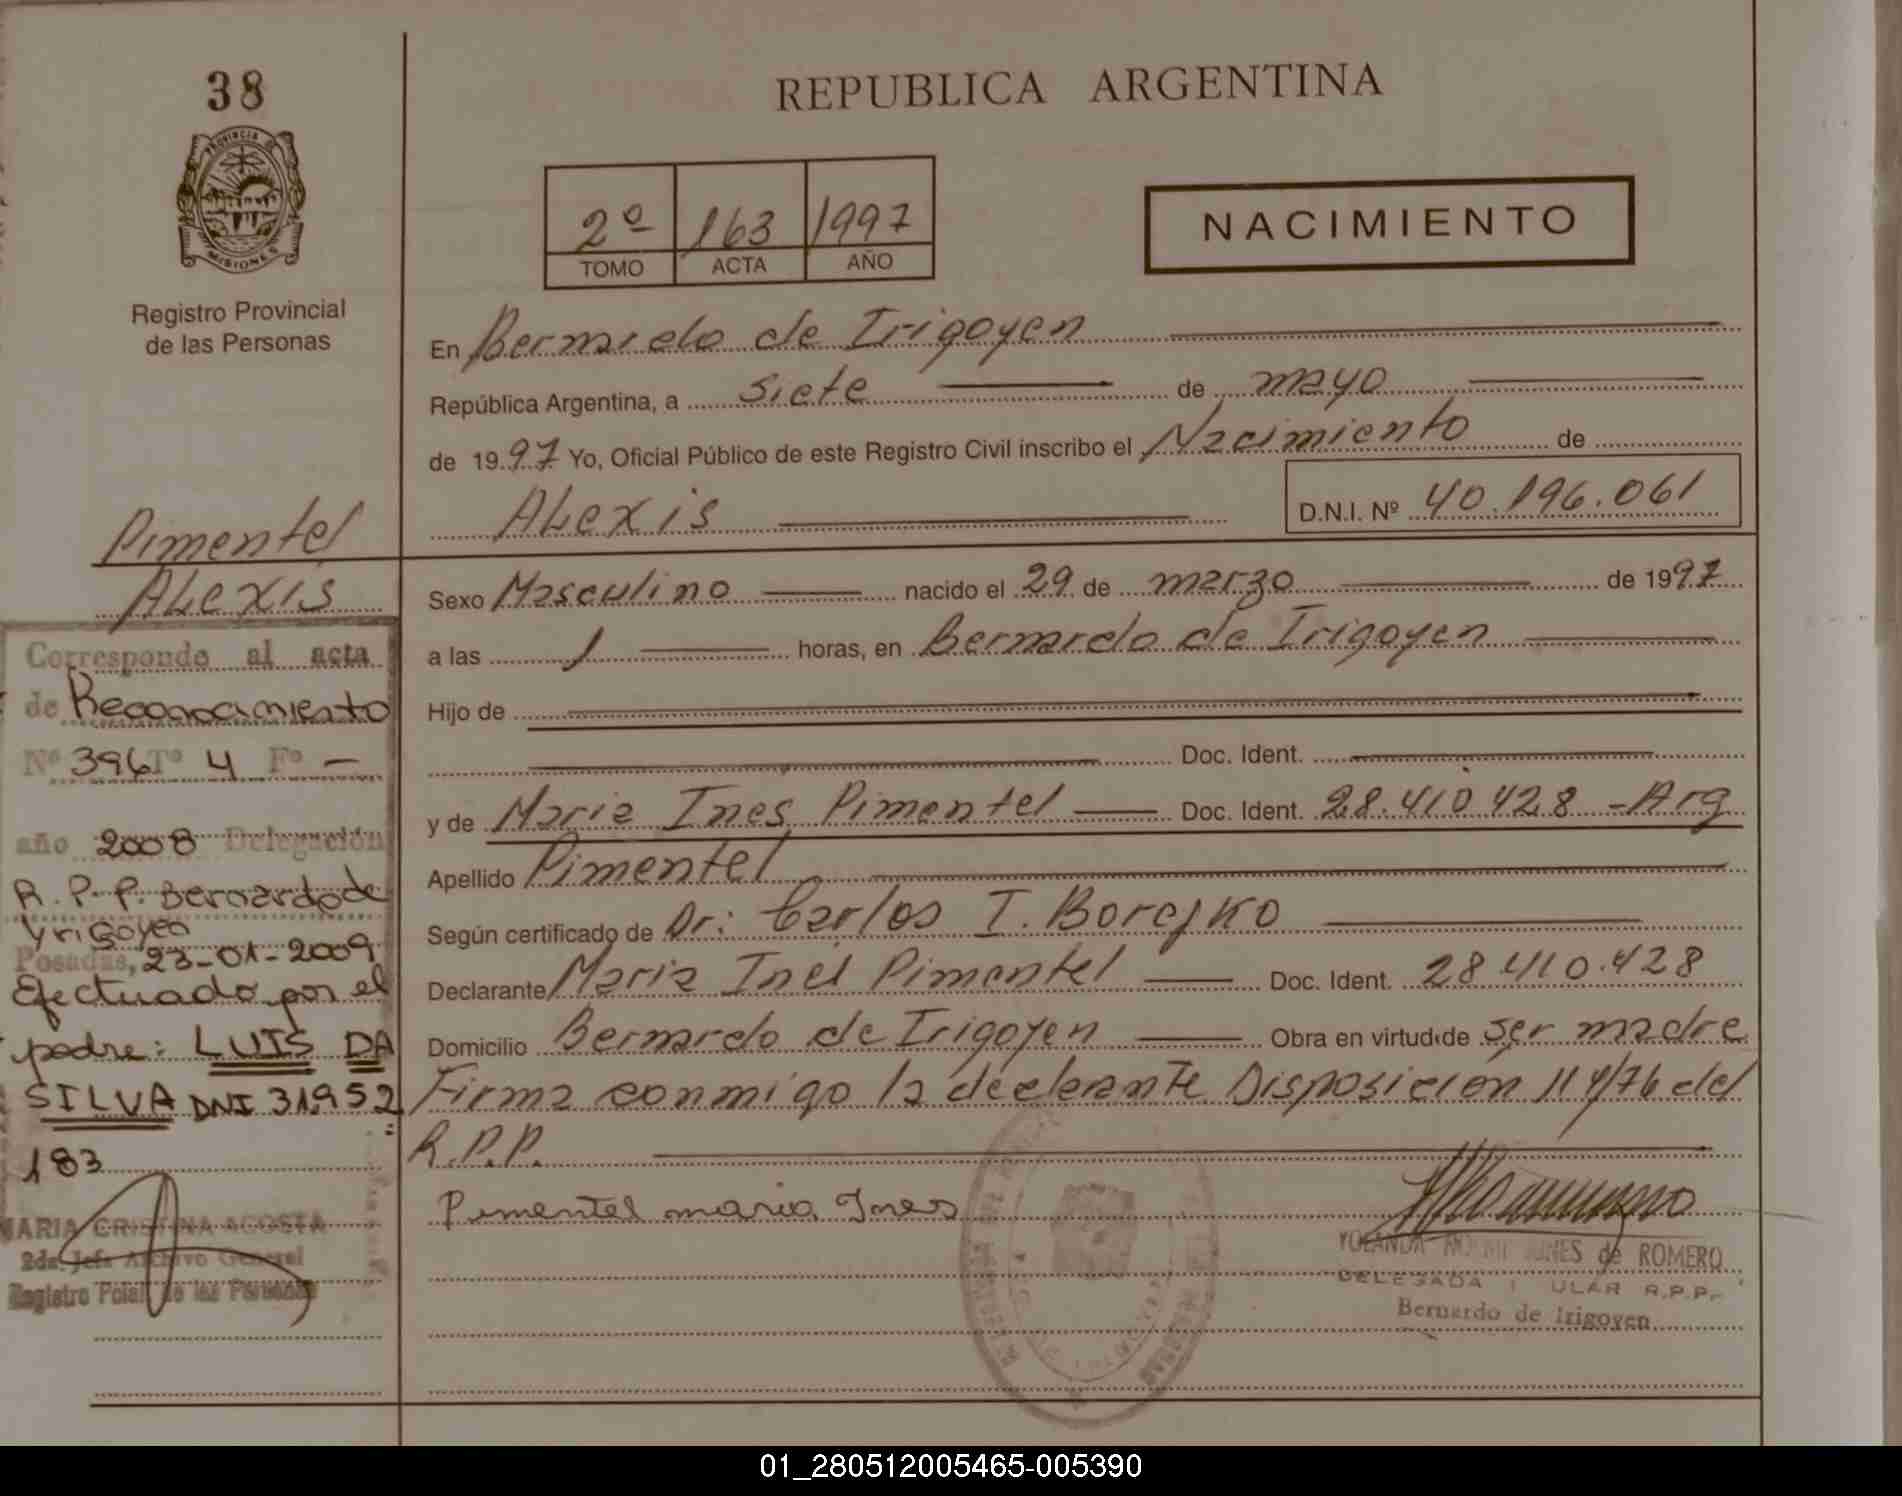 38
PROVINCIA DE
MISIONES
Registro Provincial
de las Personas
REPUBLICA ARGENTINA
2º 163 1997
TOMO ACTA AÑO
NACIMIENTO
En Bernardo de Irigoyen
República Argentina, a siete de mayo
de 1997 Yo, Oficial Público de este Registro Civil inscribo el Nacimiento de
Alexis D.N.I. Nº 40.196.061
Sexo Masculino nacido el 29 de marzo de 1997
a las 1 horas, en Bernardo de Irigoyen
Hijo de
Doc. Ident.
y de Maria Ines Pimentel Doc. Ident. 28.410.428 - Arg
Apellido Pimentel
Según certificado de Dr: Carlos T. Borejko
Declarante Maria Ines Pimentel Doc. Ident. 28.410.428
Domicilio Bernardo de Irigoyen Obra en virtud de ser madre
Firma conmigo la declarante Disposición 114/76 del
R.P.P.
Pimentel maria Ines
YOLANDA NOEMI de ROMERO
DELEGADA R.P.P.
Bernardo de Irigoyen
Pimentel
Alexis
Corresponde al acta
de Reconocimiento
Nº 396 Tº 4 Fº -
año 2008 Delegación
R.P.P. Bernardo de
Yrigoyen
Posadas, 23-01-2009
Efectuado por el
padre: LUIS DA
SILVA DNI 31.952
183
MARIA CRISTINA ACOSTA
2da. Jefa Archivo General
Registro Pcial. de las Personas
01_280512005465-005390